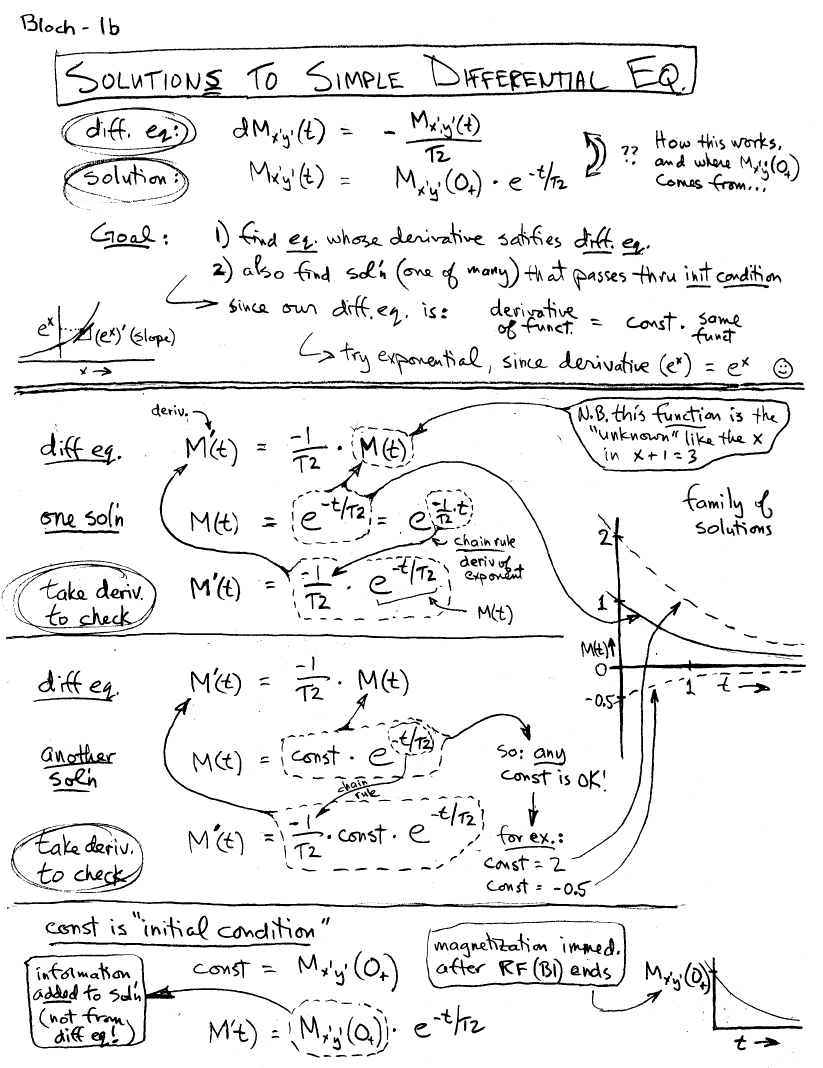 Bloch - 1b
SOLUTIONS TO SIMPLE DIFFERENTIAL EQ.
diff. eq.: dMx'y'(t) = - Mx'y'(t)/T2
solution: Mx'y'(t) = Mx'y'(0+) · e^-t/T2
?? How this works,
and where Mx'y'(0+)
comes from...
Goal: 1) find eq. whose derivative satisfies diff. eq.
2) also find sol'n (one of many) that passes thru init condition
since our diff. eq. is: derivative of funct. = const. same funct
try exponential, since derivative (e^x) = e^x ☺
e^x (e^x)' (slope)
x →
deriv.
diff eq. M'(t) = -1/T2 · M(t)
N.B. this function is the
"unknown" like the x
in x + 1 = 3
one sol'n M(t) = e^-t/T2 = e^-1/T2·t
chain rule
deriv of
exponent
take deriv.
to check
M'(t) = -1/T2 · e^-t/T2
M(t)
family of
solutions
2
1
M(t)↑
0
-0.5
1 t →
diff eq. M'(t) = -1/T2 · M(t)
another
sol'n
M(t) = const · e^-t/T2
chain
rule
so: any
const is OK!
take deriv.
to check
M'(t) = -1/T2 · const · e^-t/T2
for ex.:
const = 2
const = -0.5
const is "initial condition"
information
added to sol'n
(not from
diff eq!)
const = Mx'y'(0+)
M't) = Mx'y'(0+) · e^-t/T2
magnetization immed.
after RF (B1) ends
Mx'y'(0+)
t →